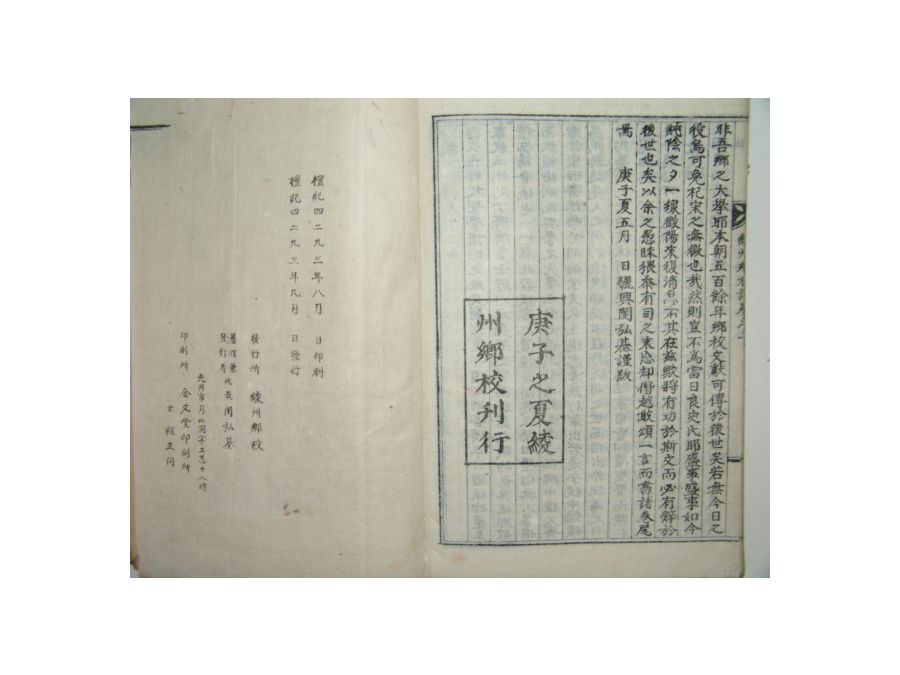 非吾鄕之大擧耶本朝五百餘年鄕校文獻可傳於後世矣若無今日之
役烏可免杞宋之無徵也哉然則豈不爲當日良史氏耶盛事盛事如今
純陰之夕一線微陽來復消息不其在玆歟將有功於斯文而必有辭於
後世也矣以余之愚昧猥忝有司之末忘却僭越敢頌一言而書諸卷尾
焉 庚子夏五月 日驪興閔弘基謹跋
庚子之夏綾
州鄕校刊行
檀記四二九三年八月 日印刷
檀記四二九三年九月 日發行
發行所 綾州鄕校
著作兼
發行者
代表閔弘基
光州市
印刷所 金文堂印刷所